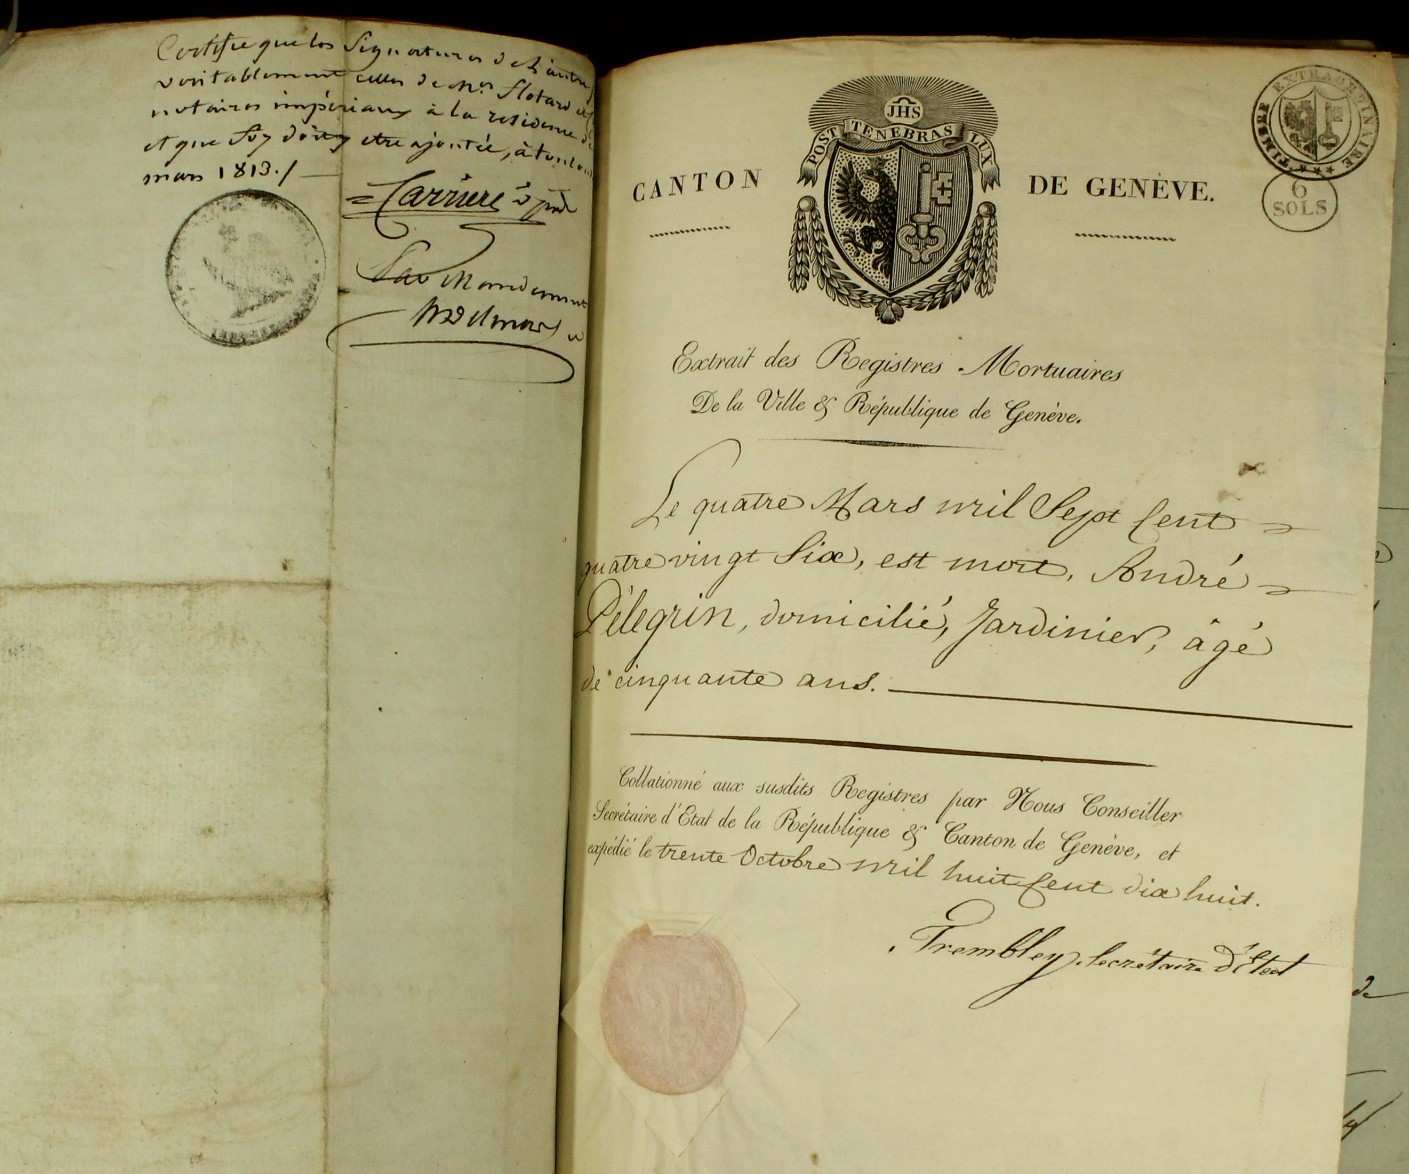 Certifie que les Signatures de l'autre
veritablement celles de Mes Flotard et
notaires impériaux à la residence de
et que foy doit etre ajoutée, à
mars 1813./
Carriere
Par Mandement
JHS
POST TENEBRAS LUX
CANTON DE GENÈVE.
TIMBRE EXTRAORDINAIRE
6
SOLS
Extrait des Registres Mortuaires
De la Ville & République de Genève.
Le quatre Mars mil Sept Cent
quatre vingt Six, est mort, André
Pélegrin, domicilié, Jardinier, âgé
de cinquante ans.
Collationné aux susdits Registres par Nous Conseiller
Secrétaire d'Etat de la République & Canton de Genève, et
expédié le trente Octobre mil huit Cent dix huit.
Trembley Secrétaire d'Etat
de